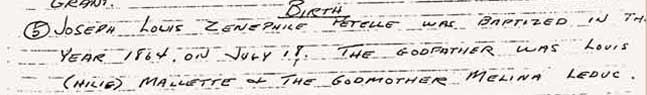 GRANT.
BIRTH
⑤ JOSEPH LOUIS ZENEPHILE PETELLE WAS BAPTIZED IN TH
YEAR 1864, ON JULY 18, THE GODFATHER WAS LOUIS
(HILIE) MALLETTE & THE GODMOTHER MELINA LEDUC.